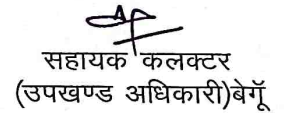 सहायक कलक्टर
(उपखण्ड अधिकारी)बेगूॅं